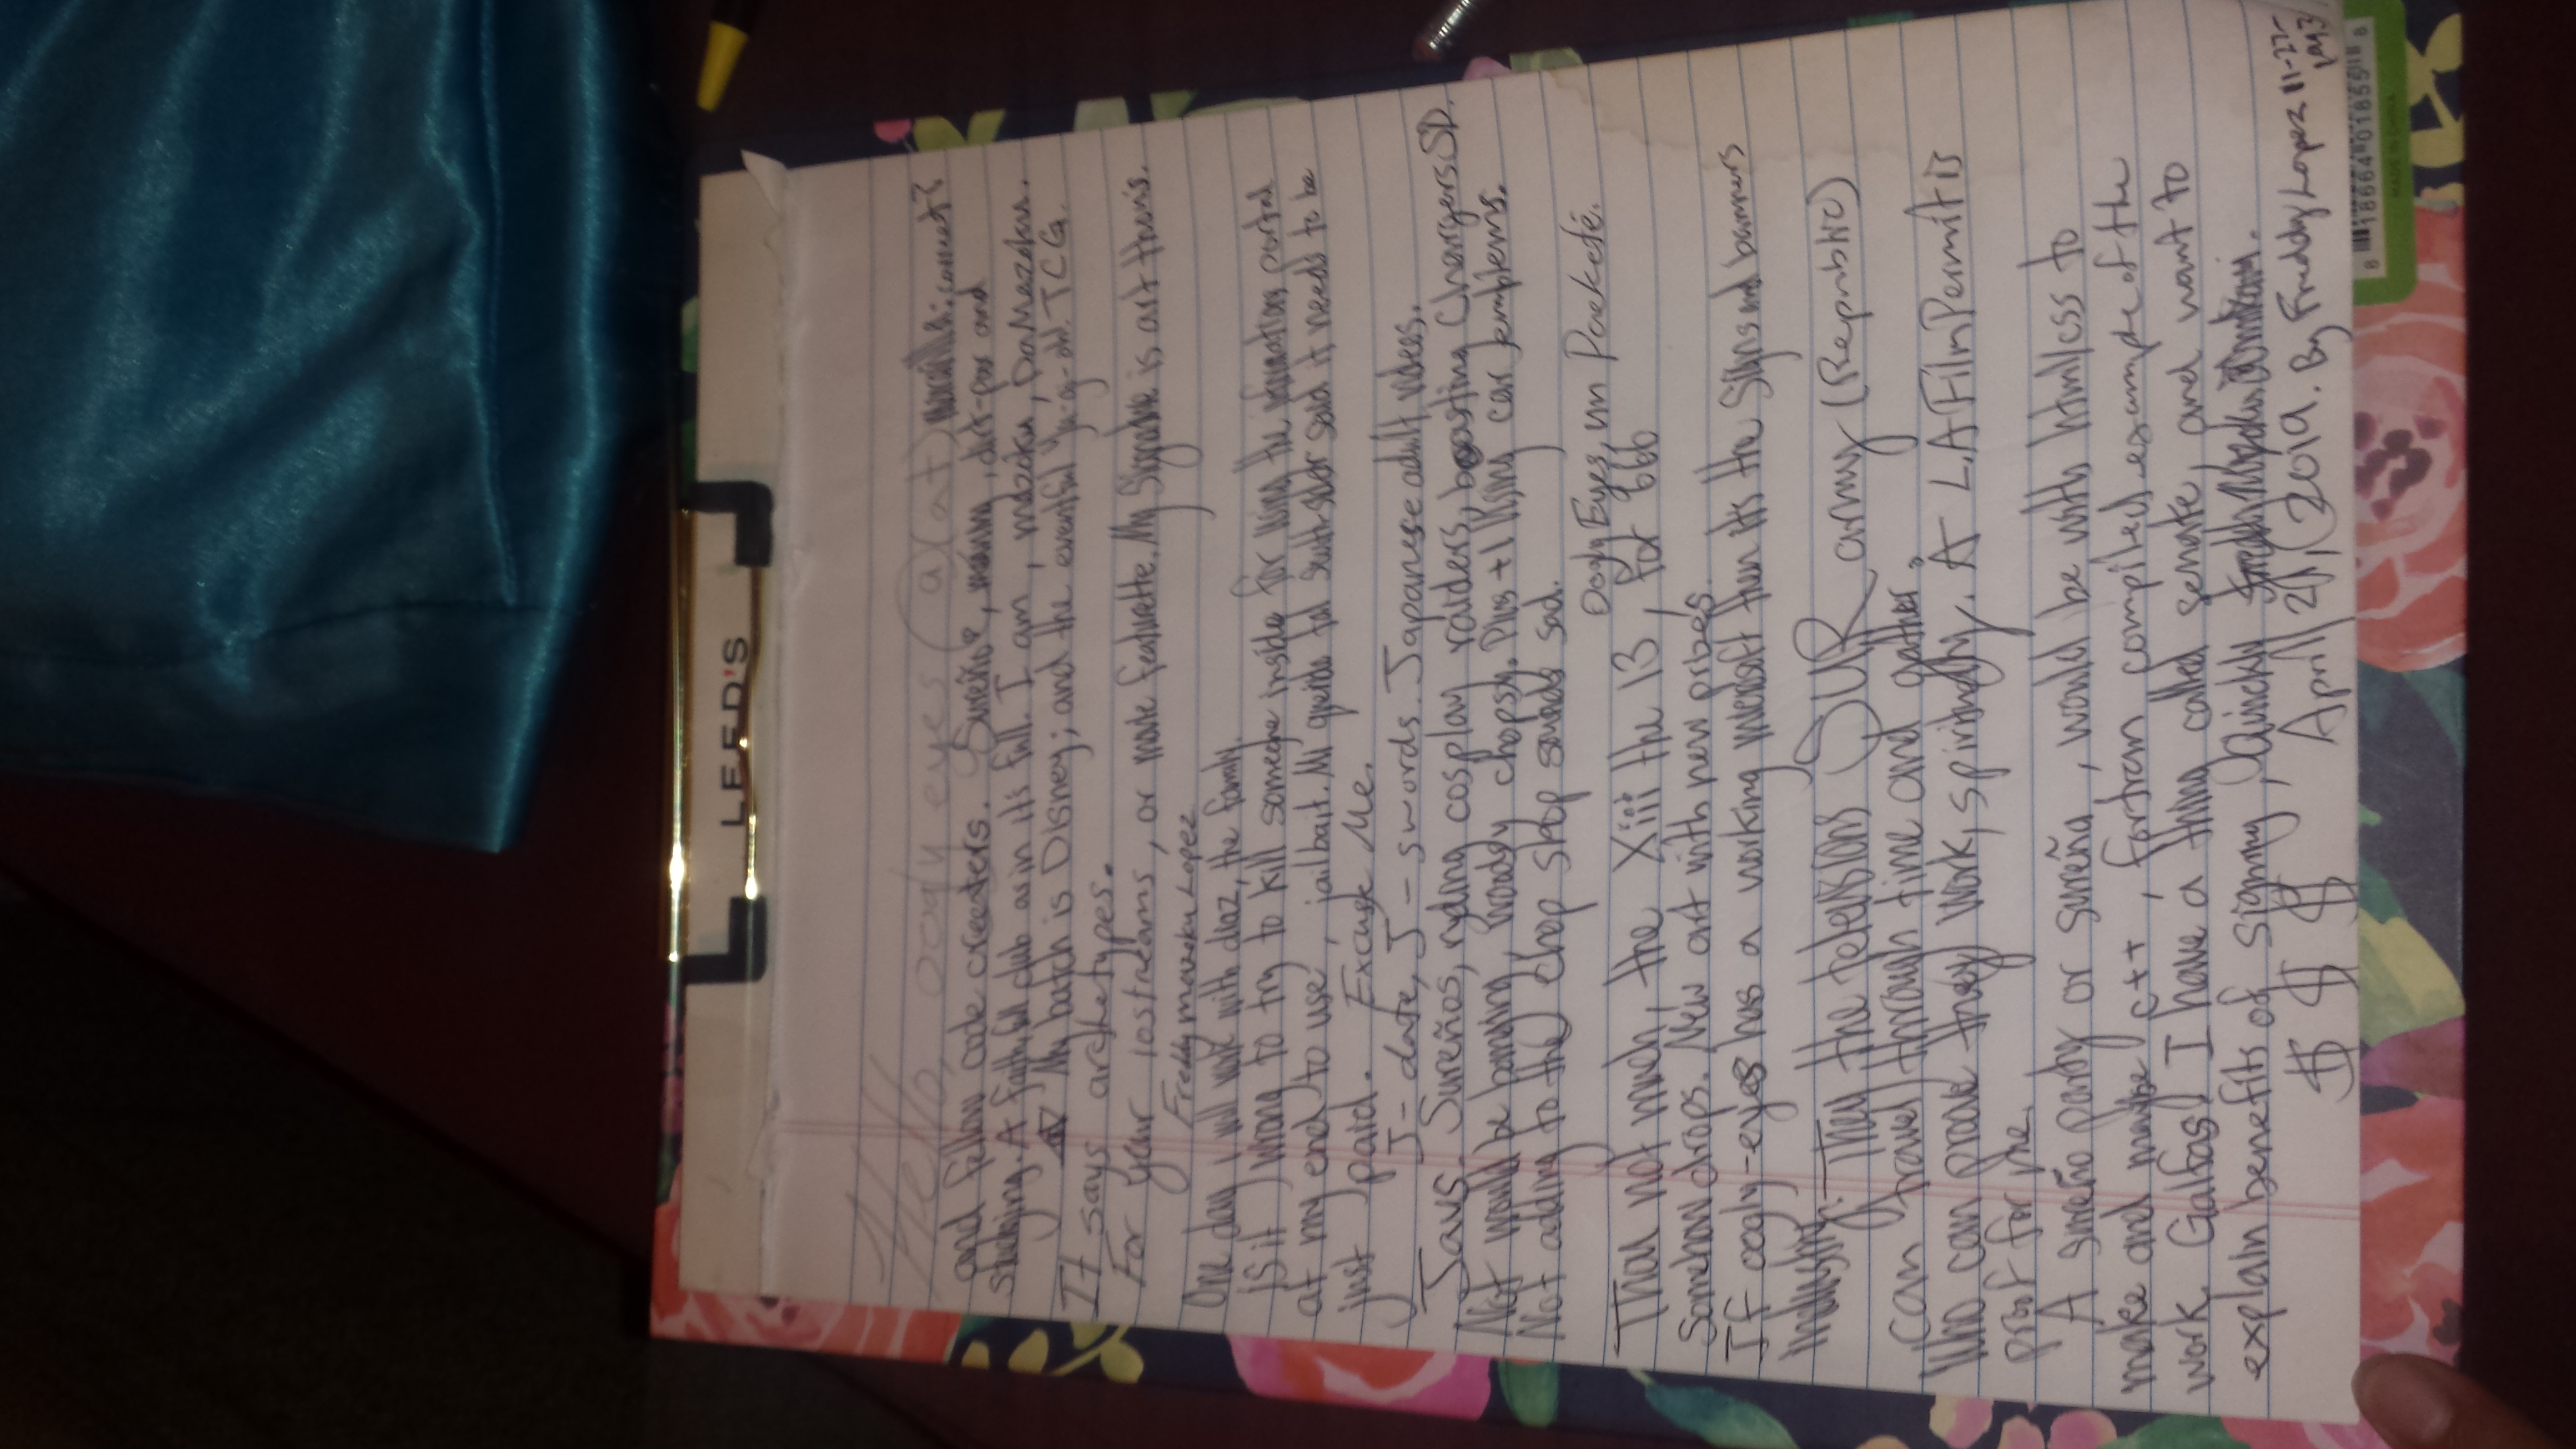 LEED'S
Hello, oogly eyes @ (at) : correct?
and fellow code creeters. Sureño, meaning, dirt-poor and
studying. A faithfull club as in it's full. I am, mazoku, DaMazoku.
My batch is Disney; and the eventful Yu-gi-oh! TCG.
It says archetypes.
For your iostreams, or movie featurette. My Signature is art thou's.
Freddy mazoku Lopez
One day i will work with diaz, the family.
Is it wrong to try to kill someone inside for using the informations portal
at my end to use, jailbait. Mi querido tal south-sider said it needs to be
just paid. Excuse Me.
J-date, J-swords. Japanese adult videos.
Javs. Sureños, ryding cosplay raiders, boasting Chargers SD.
Not would be banging, woodsy chopsy. Plus +1 Using car emblems.
Not adding to the chop shop sounds sad.
Oogly Eyes, un Paeketé.
Thou not much, the Xiii the 13, for 666
Somehow drops. New art with new prizes.
If oogly-eyes has a working microsoft then it's the Signs and banners
industry. They, the televisions SUR army (Republic)
can travel through time and gather.
Who can proove they work, spiritually. A L.A Film Permit is
proof for me.
A sureño party or sureña, would be with html/css to
make and maybe c++, fortran compiled example of the
work. Galfas. I have a thing called senate, and want to
explain benefits of signing, Quickly Freddy Mazoku
$ $ $ April 21, 2019. By Freddy Lopez 11-27-
8 18664 01855 8
MADE IN CHINA